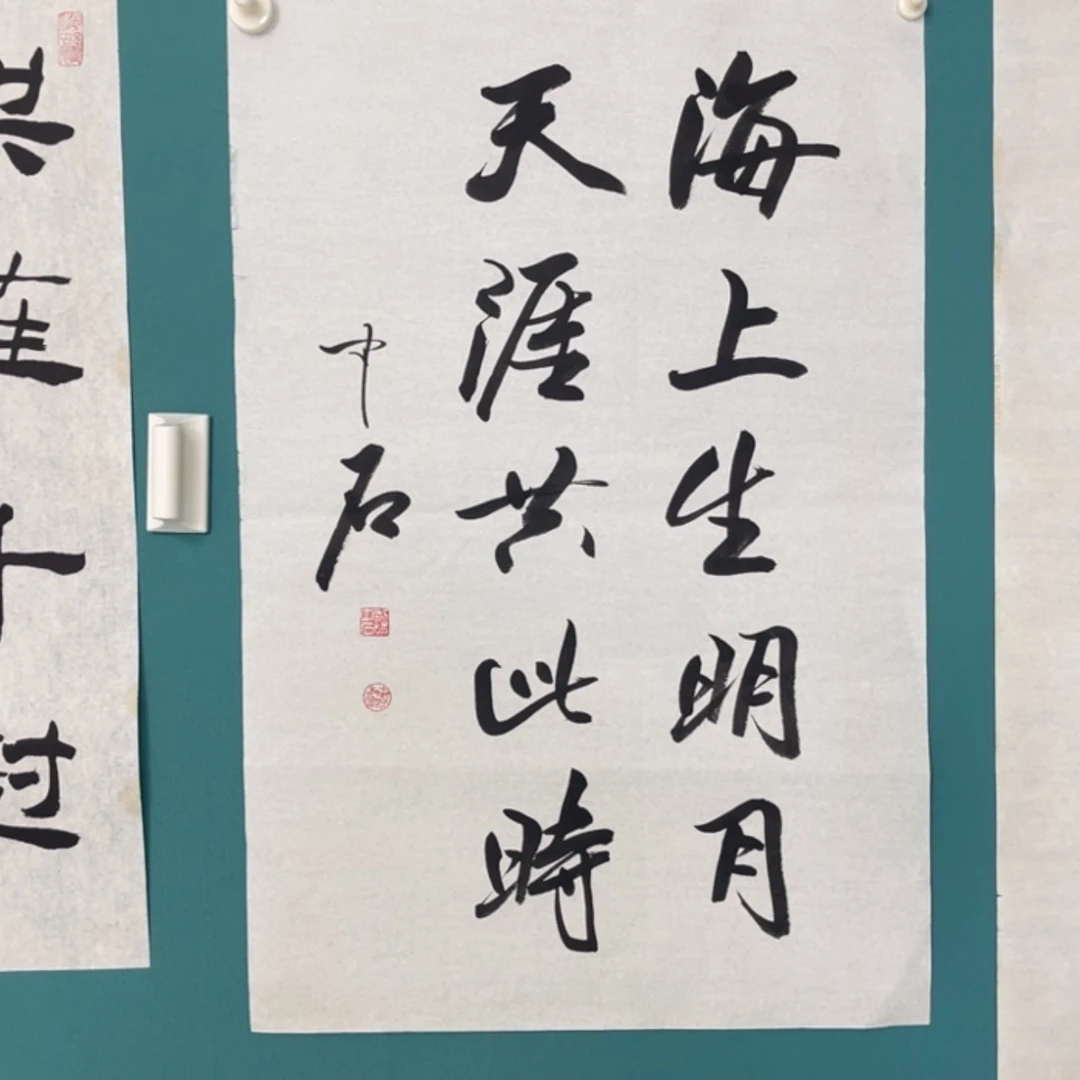 海上生明月
天涯共此時
中石